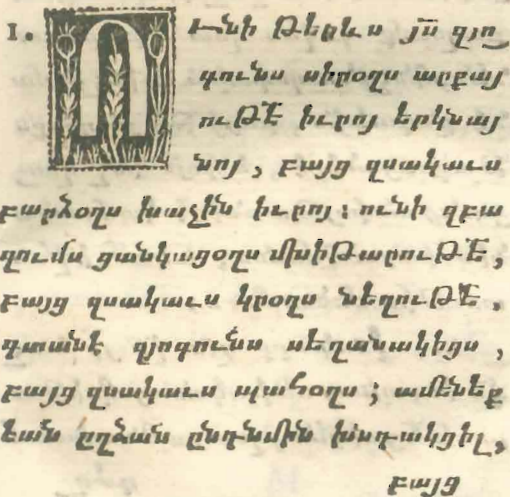 1. Ունի թերևս յս՟ զյո
գունս սիրօղս արքայ
ութե՟ իւրոյ երկնայ
նոյ, բայց զսակաւս
բարձօղս խաչին իւրոյ։ ունի զբա
զումս ցանկացօղս մխիթարութե՟,
բայց զսակաւս կրօղս նեղութե՟.
գտանէ զյոգունս սեղանակիցս,
բայց զսակաւս պահօղս; ամենեք
եան ըղձան ընդնմին խնդակցիլ,
բայց